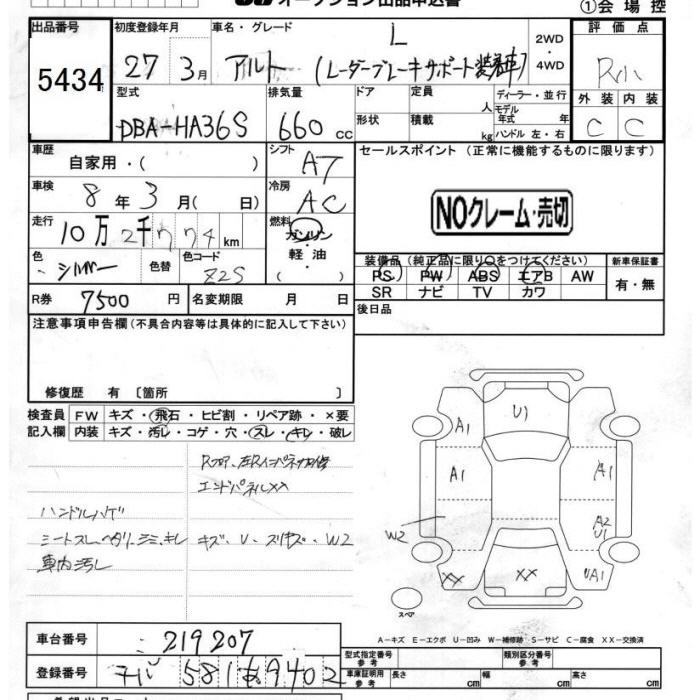 オークション出品申込書
①会場控
出品番号 初度登録年月 車名・グレード L 2WD・4WD 評価点
5434 27 3月 アルト (レーダーブレーキサポート装着車) R
型式 排気量 ドア 定員 人 ディーラー・並行 外装 内装
モデル年式 年
DBA-HA36S 660 cc 形状 積載 kg ハンドル 左・右 C C
車歴 シフト セールスポイント (正常に機能するものに限ります)
自家用・( ) AT
車検 冷房
8年 3月 ( 日) AC
NOクレーム・売切
走行 燃料
10万2千774km ガソリン
軽・油
( )
色 色替 色コード 装備品 (純正品に限り○をつけてください) 新車保証書
シルバー Z2S PS PW ABS エアB AW 有・無
SR ナビ TV カワ
R券 7500円 名変期限 月 日 後日品
注意事項申告欄 (不具合内容等は具体的に記入して下さい)
修復歴 有 〔箇所 〕
検査員 FW キズ・飛石・ヒビ割・リペア跡・×要
記入欄 内装 キズ・汚レ・コゲ・穴・スレ・キレ・破レ
Rフロア、左Rインパネ
エンドパネルXX
ハンドルハゲ
シートスレ、ヘタリ、シミ、キレ キズ・U・スリキズ・W2
車内汚レ
U1
A1
A1
A1
A2
U1
W2
XX
XX
UA1
スペア
A-キズ E-エクボ U-凹ミ W-補修跡 S-サビ C-腐食 XX-交換済
車台番号 219207 型式指定番号参考 類別区分番号参考
登録番号 581 あ 9402 車庫証明用参考 長さ cm 幅 cm 高さ cm